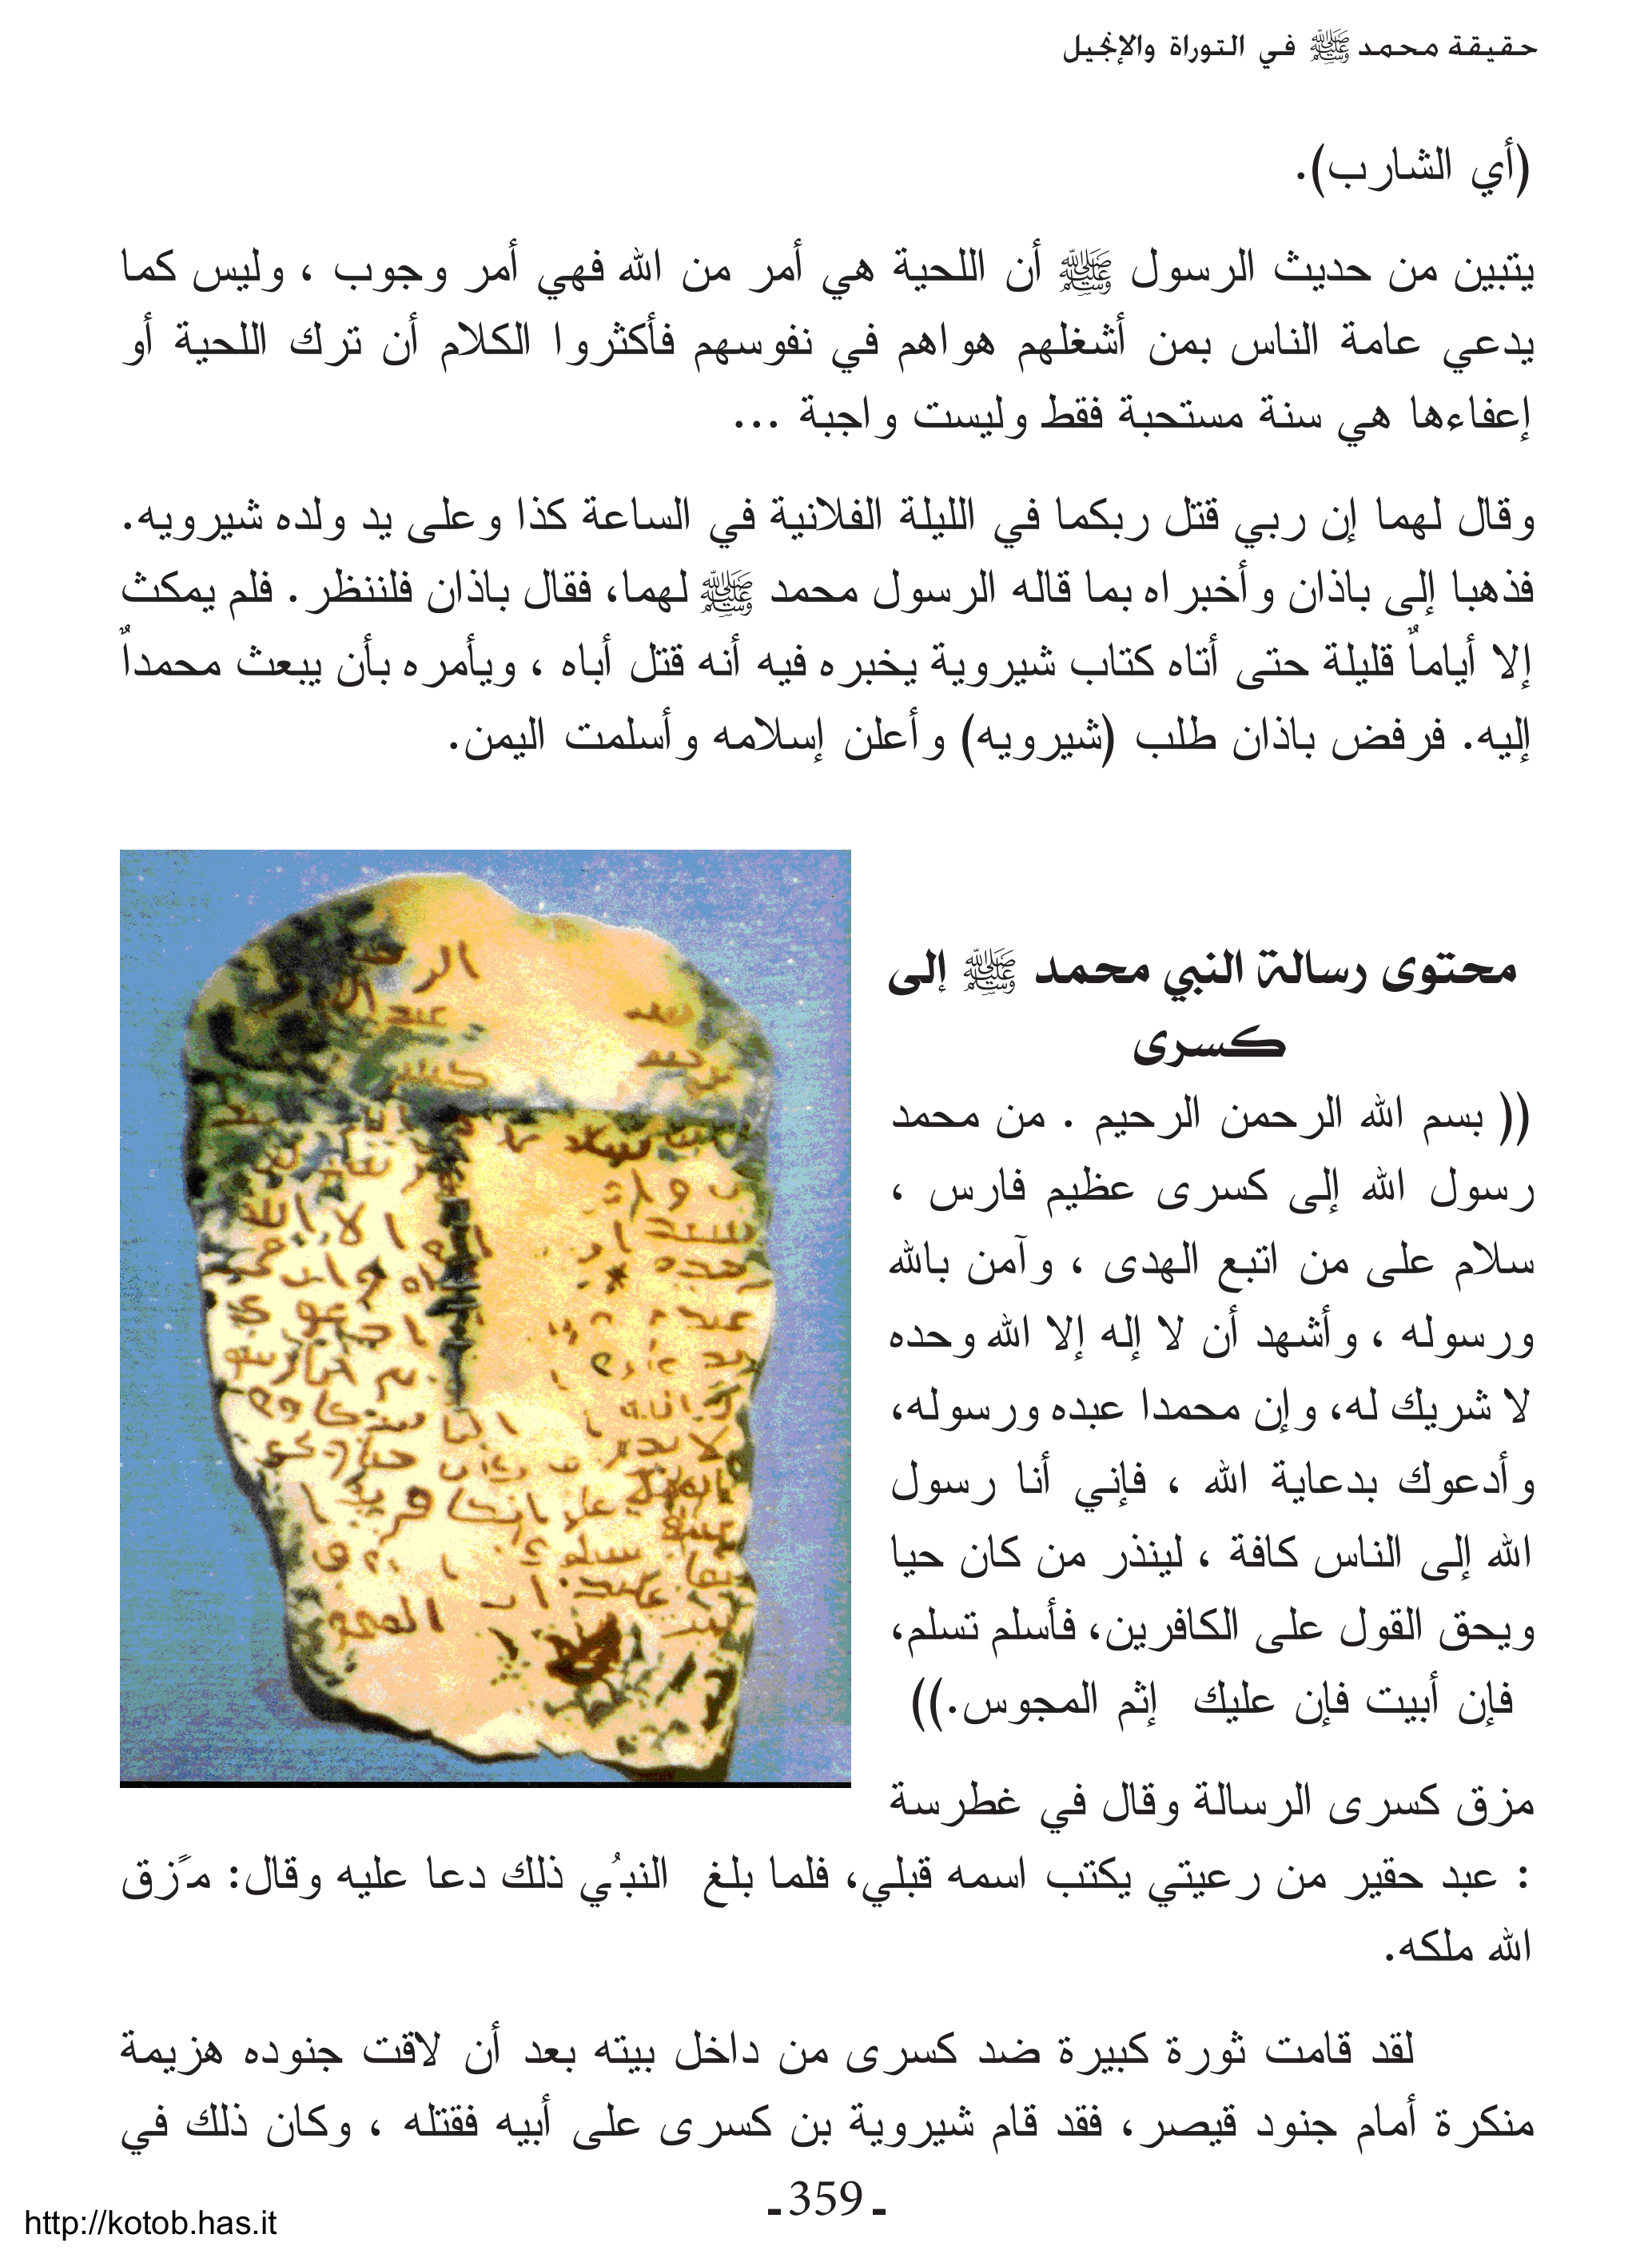 حقيقة محمد ﷺ في التوراة والإنجيل
(أي الشارب).
يتبين من حديث الرسول ﷺ أن اللحية هي أمر من الله فهي أمر وجوب ، وليس كما
يدعي عامة الناس بمن أشغلهم هواهم في نفوسهم فأكثروا الكلام أن ترك اللحية أو
إعفاءها هي سنة مستحبة فقط وليست واجبة ...
وقال لهما إن ربي قتل ربكما في الليلة الفلانية في الساعة كذا وعلى يد ولده شيرويه.
فذهبا إلى باذان وأخبراه بما قاله الرسول محمد ﷺ لهما، فقال باذان فلننظر. فلم يمكث
إلا أياماٌ قليلة حتى أتاه كتاب شيروية يخبره فيه أنه قتل أباه ، ويأمره بأن يبعث محمداٌ
إليه. فرفض باذان طلب (شيرويه) وأعلن إسلامه وأسلمت اليمن.
محتوى رسالة النبي محمد ﷺ إلى
كسرى
(( بسم الله الرحمن الرحيم . من محمد
رسول الله إلى كسرى عظيم فارس ،
سلام على من اتبع الهدى ، وآمن بالله
ورسوله ، وأشهد أن لا إله إلا الله وحده
لا شريك له، وإن محمدا عبده ورسوله،
وأدعوك بدعاية الله ، فإني أنا رسول
الله إلى الناس كافة ، لينذر من كان حيا
ويحق القول على الكافرين، فأسلم تسلم،
فإن أبيت فإن عليك إثم المجوس.))
مزق كسرى الرسالة وقال في غطرسة
: عبد حقير من رعيتي يكتب اسمه قبلي، فلما بلغ النبُي ذلك دعا عليه وقال: مًزق
الله ملكه.
لقد قامت ثورة كبيرة ضد كسرى من داخل بيته بعد أن لاقت جنوده هزيمة
منكرة أمام جنود قيصر، فقد قام شيروية بن كسرى على أبيه فقتله ، وكان ذلك في
- 359 -
http://kotob.has.it